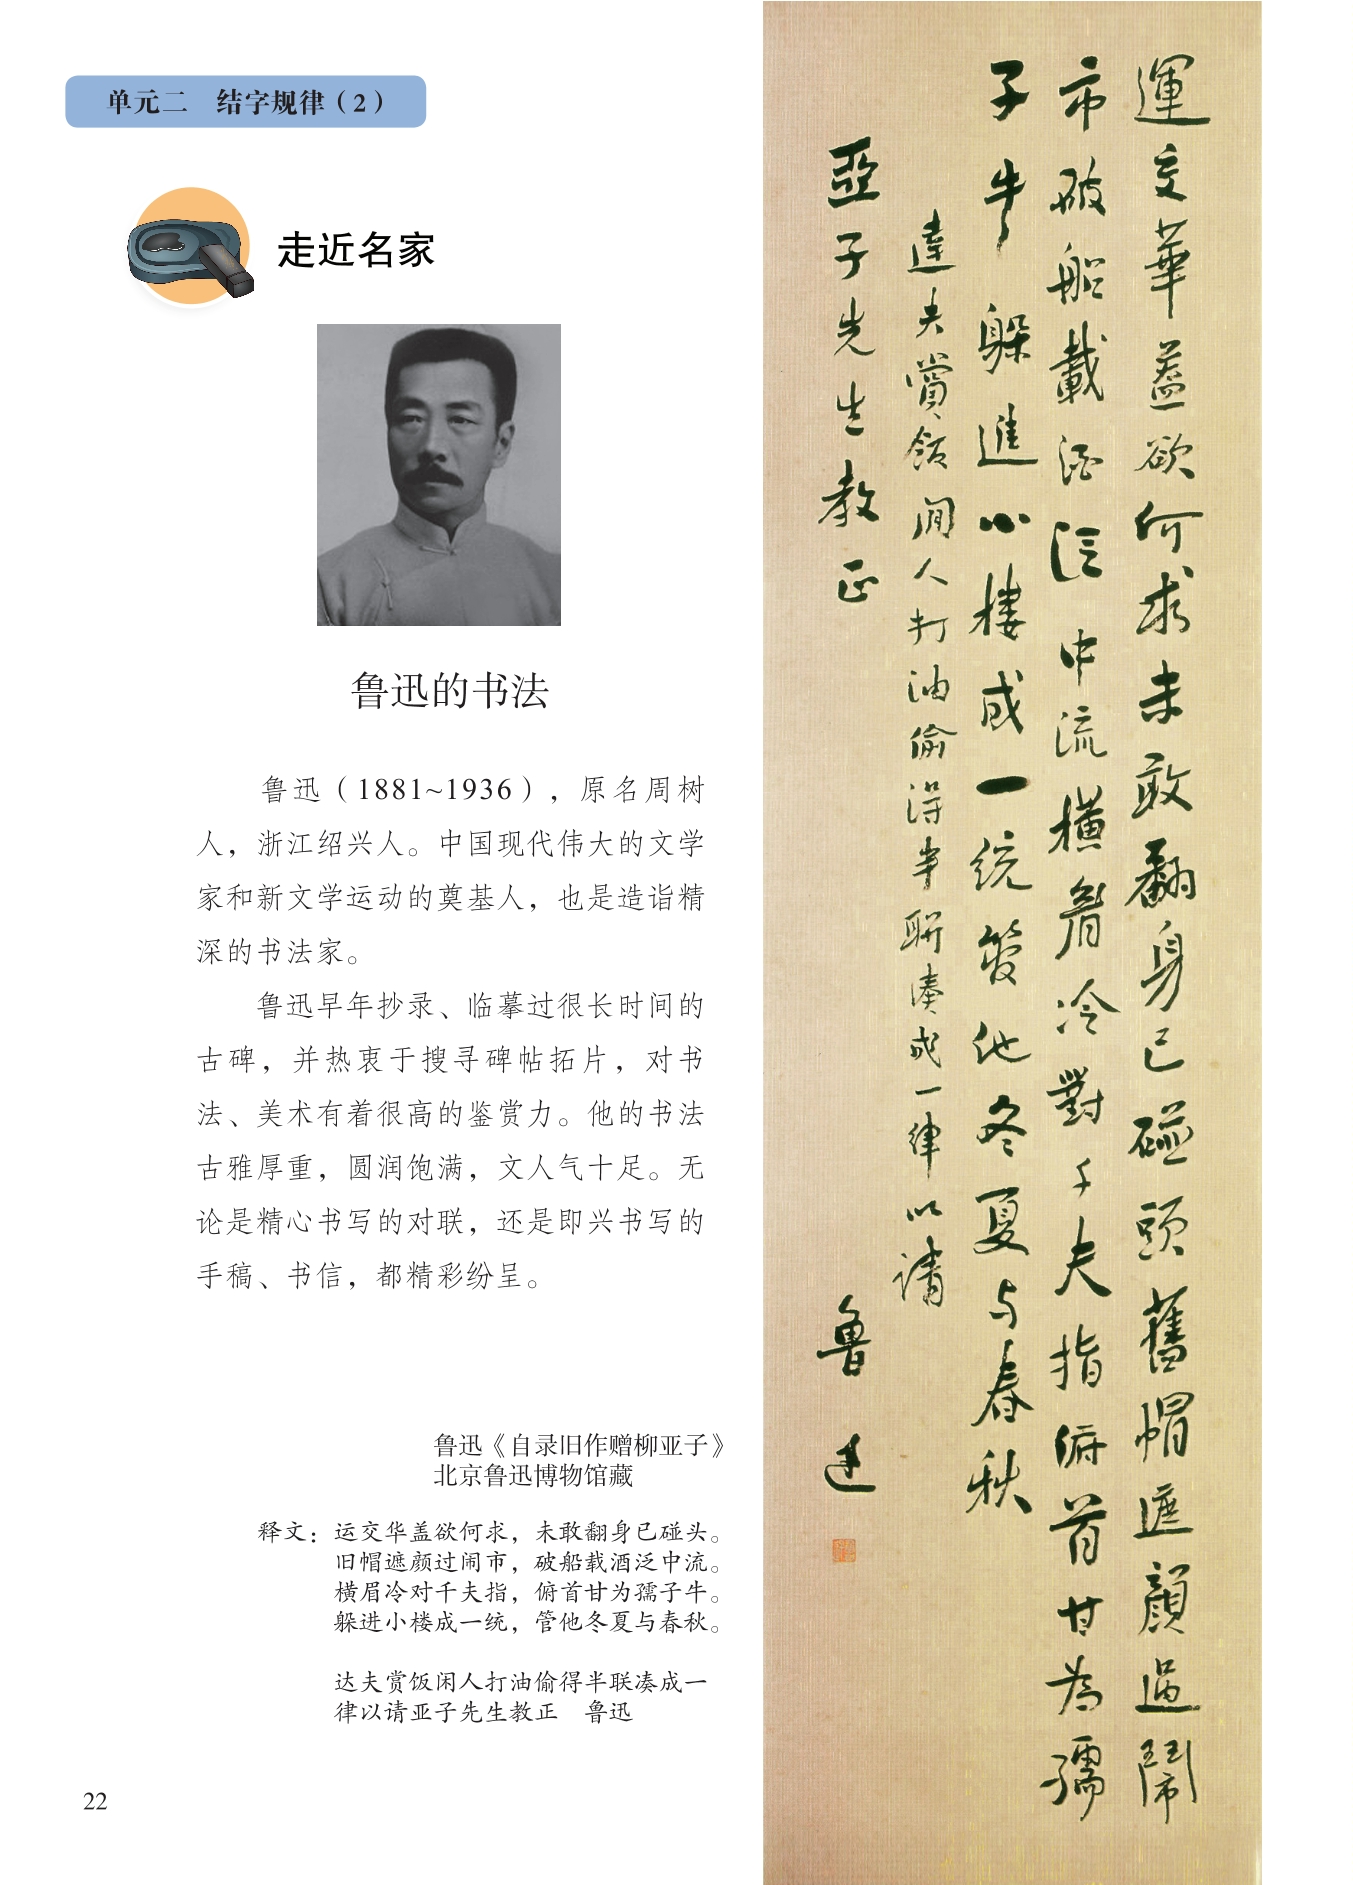 单元二　结字规律（2）
走近名家
鲁迅的书法
鲁迅（1881~1936），原名周树
人，浙江绍兴人。中国现代伟大的文学
家和新文学运动的奠基人，也是造诣精
深的书法家。
鲁迅早年抄录、临摹过很长时间的
古碑，并热衷于搜寻碑帖拓片，对书
法、美术有着很高的鉴赏力。他的书法
古雅厚重，圆润饱满，文人气十足。无
论是精心书写的对联，还是即兴书写的
手稿、书信，都精彩纷呈。
鲁迅《自录旧作赠柳亚子》
北京鲁迅博物馆藏
释文：运交华盖欲何求，未敢翻身已碰头。
旧帽遮颜过闹市，破船载酒泛中流。
横眉冷对千夫指，俯首甘为孺子牛。
躲进小楼成一统，管他冬夏与春秋。
达夫赏饭闲人打油偷得半联凑成一
律以请亚子先生教正　鲁迅
22
運交華蓋欲何求未敢翻身已碰頭舊帽遮顔過鬧
市破船載酒泛中流橫眉冷對千夫指俯首甘為孺
子牛躲進小樓成一統管他冬夏与春秋
達夫賞飯閒人打油偷得半聯湊成一律以請
亞子先生教正
魯迅